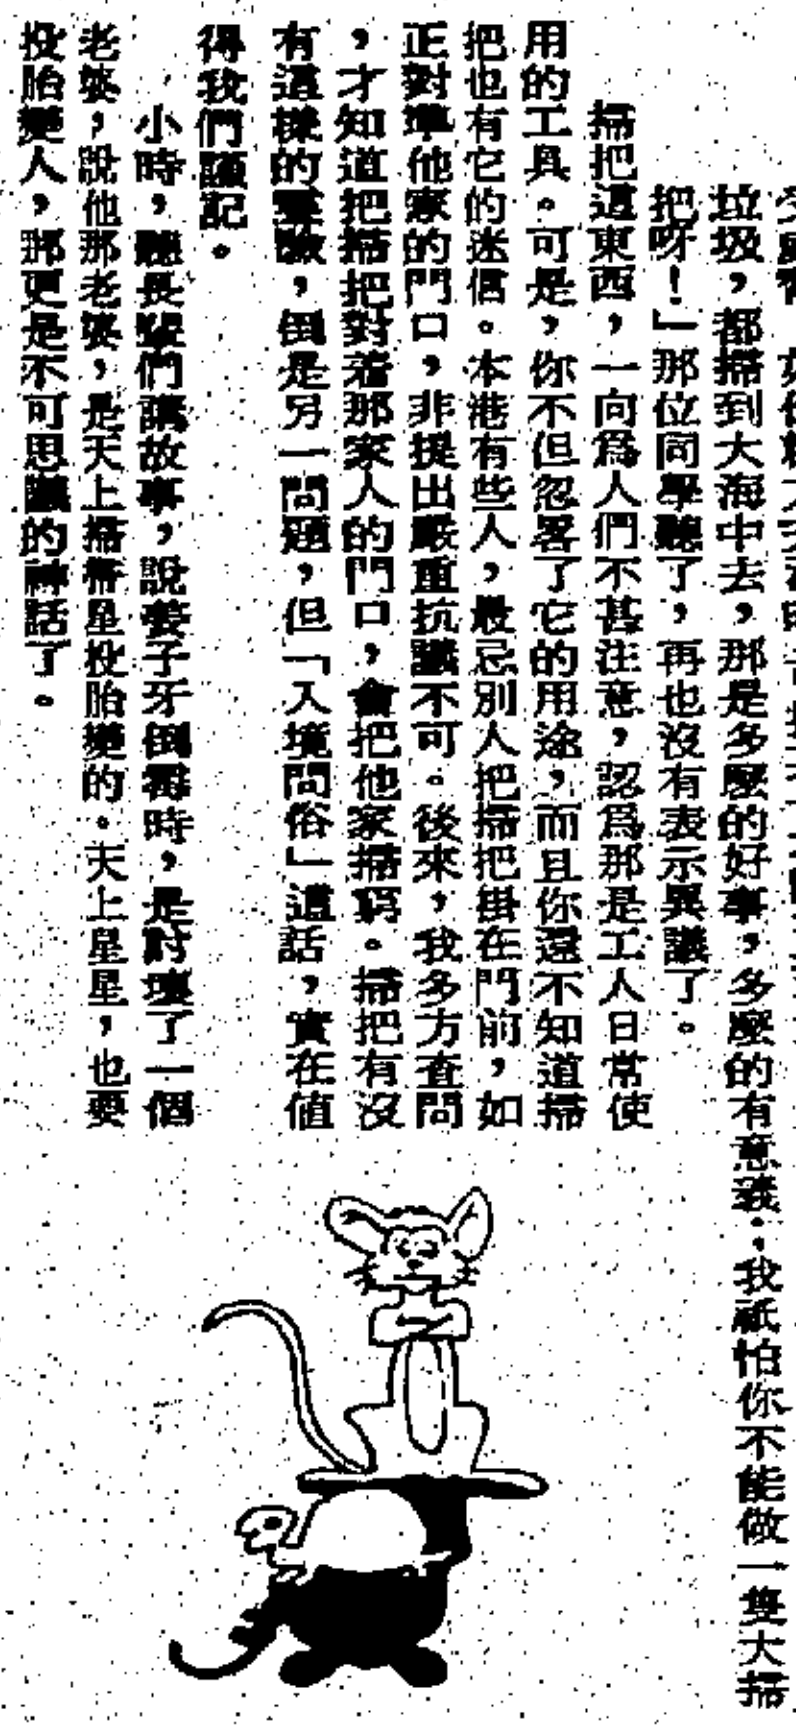 垃圾，都掃到大海中去，那是多麼的好事，多麼的有意義；我祇怕你不能做一隻大掃
把呀！」那位同學聽了，再也沒有表示異議了。
掃把這東西，一向爲人們不甚注意，認爲那是工人日常使
用的工具。可是，你不但忽畧了它的用途，而且你還不知道掃
把也有它的迷信。本港有些人，最忌別人把掃把掛在門前，如
正對準他家的門口，非提出嚴重抗議不可。後來，我多方查問
，才知道把掃把對着那家人的門口，會把他家掃窮。掃把有沒
有這樣的靈驗，倒是另一問題，但「入境問俗」這話，實在值
得我們謹記。
小時，聽長輩們講故事，說姜子牙倒霉時，是討壞了一個
老婆，說他那老婆，是天上掃帚星投胎變的。天上星星，也要
投胎變人，那更是不可思議的神話了。